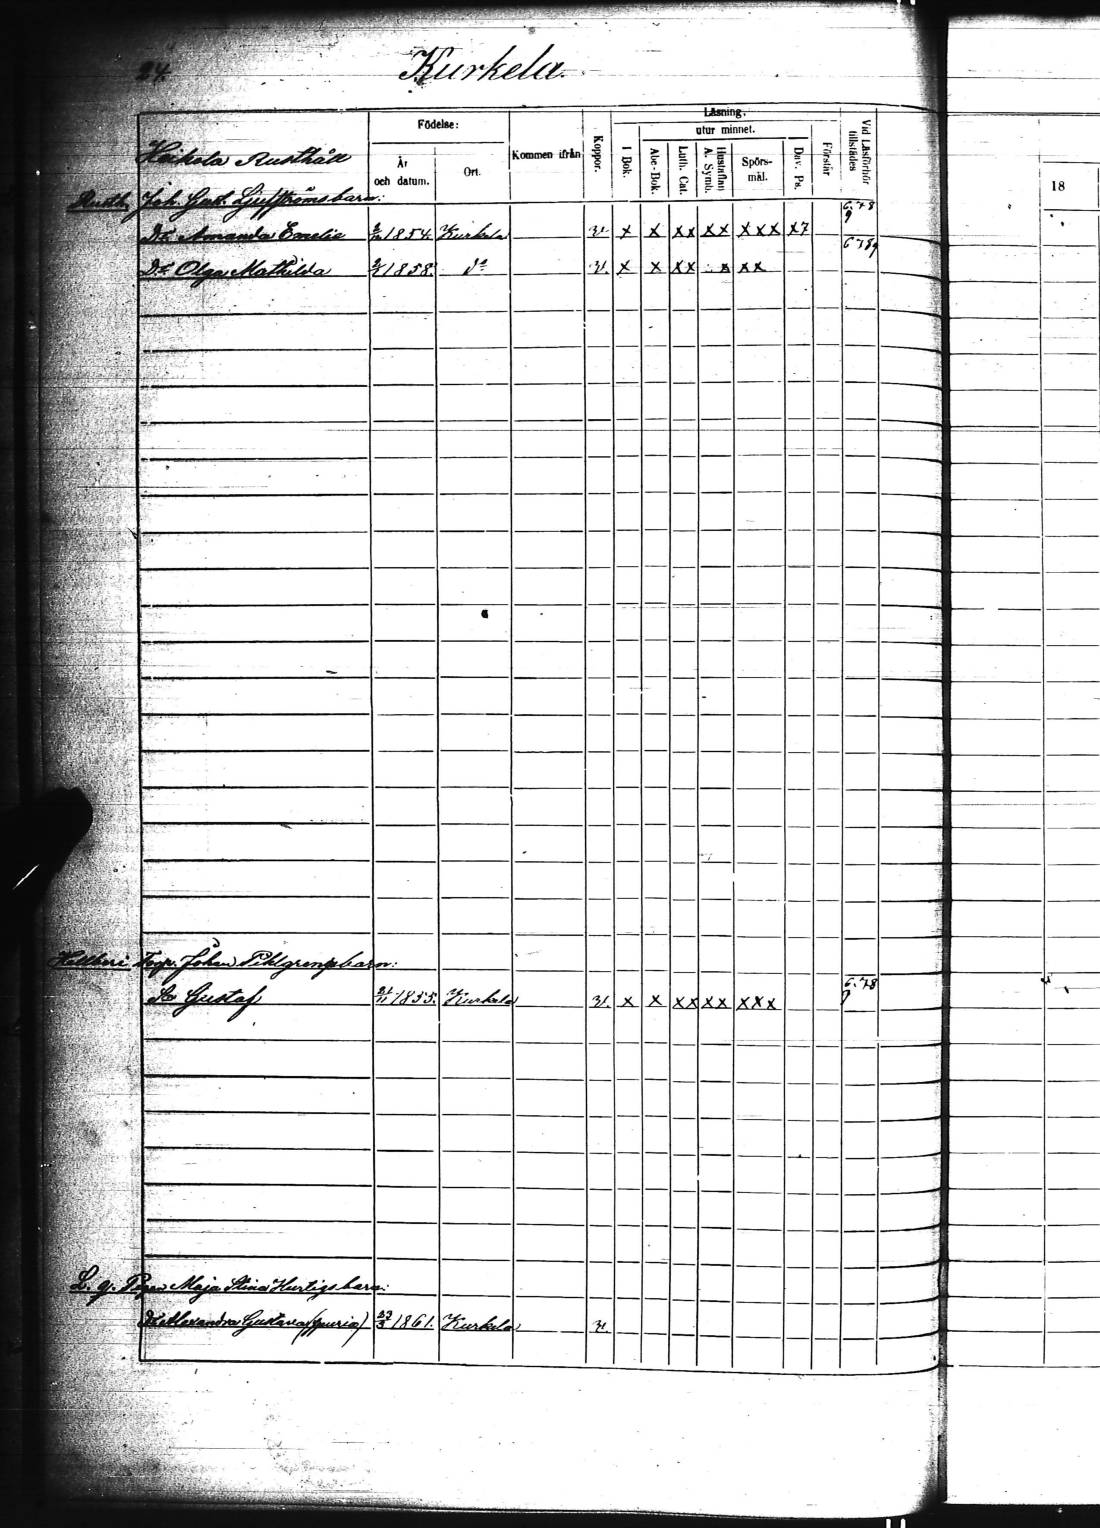 24.
Kurkela.
Födelse:
År
och datum.
Ort.
Kommen ifrån
Koppor.
Läsning.
I Bok.
utur minnet.
Abc-Bok.
Luth. Cat.
Hustaflan
A. Symb.
Spörs-
mål.
Dav. Ps.
Förstår
Vid Läsförhör
tillstädes
18
Heikola Rusthåll
Rusth. Joh. Gust. Ljufströms barn:
Dr Amanda Emelie 1854. Kurkela x x xx xx xxx x7 6.78 9
Dr Olga Mathilda 1858. do x x xx x xx 6 789
Torp. Johan Pihlgrens barn:
So Gustaf 21/11 1855. Kurkela x x xx xx xxx 6.78 9
L. g. Pigan Maja Stina Hurtigs barn:
Dr Alexandra Gustava (spuria) 23/3 1861. Kurkela